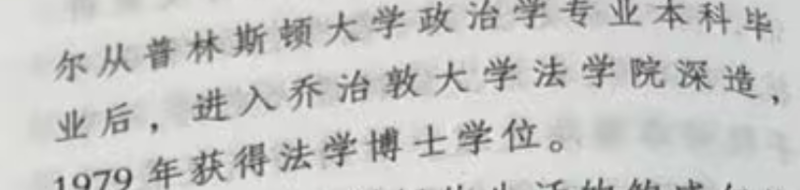 尔从普林斯顿大学政治学专业本科毕
业后，进入乔治敦大学法学院深造，
1979 年获得法学博士学位。